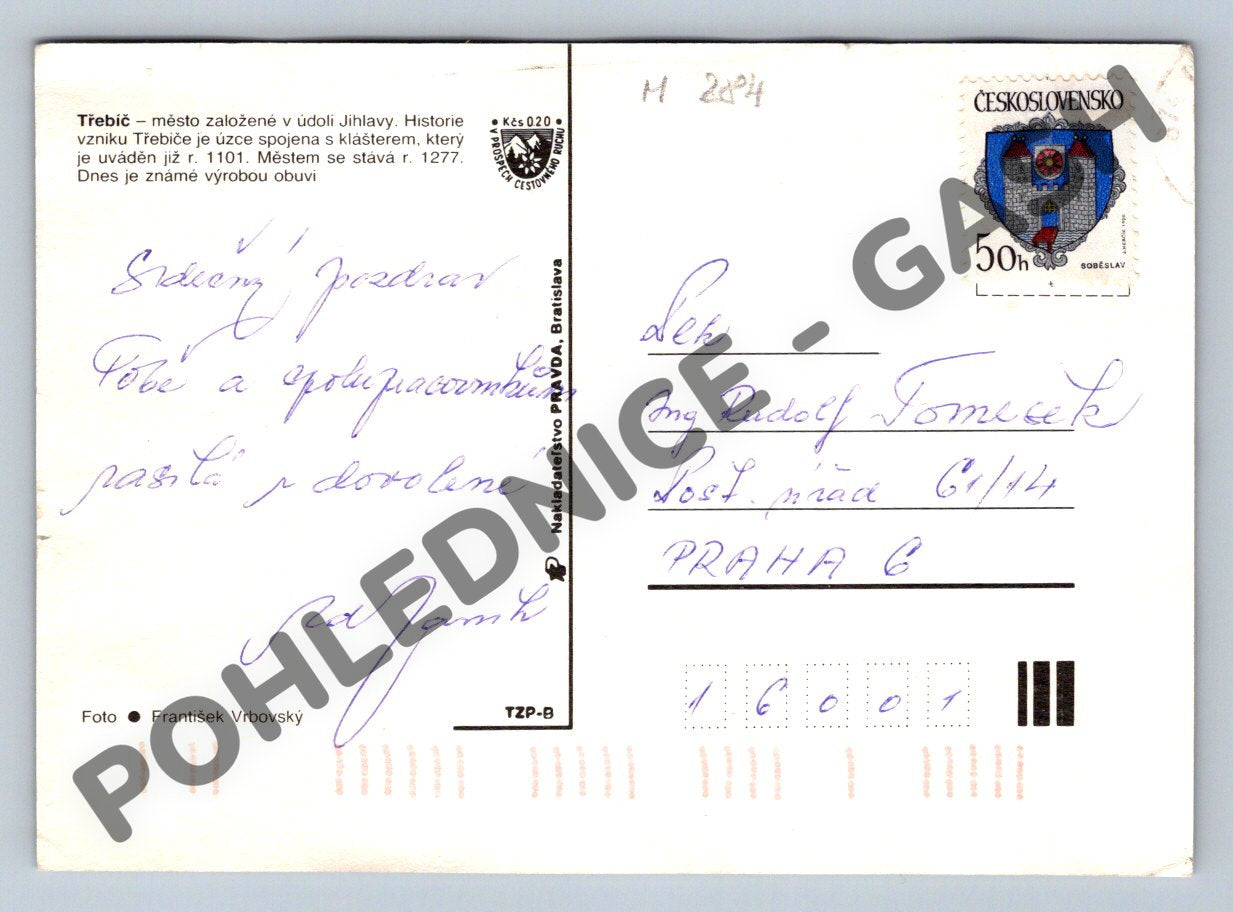 Třebíč – město založené v údolí Jihlavy. Historie
vzniku Třebíče je úzce spojena s klášterem, který
je uváděn již r. 1101. Městem se stává r. 1277.
Dnes je známé výrobou obuvi
• Kčs 0.20 •
V PROSPĚCH CESTOVNÉHO RUCHU
Srdečný pozdrav
Tobě a spolupracovníkům
zasílá z dovolené
Foto ● František Vrbovský
TZP-B
Nakladateľstvo PRAVDA, Bratislava
M 284
ČESKOSLOVENSKO
50h
SOBĚSLAV
Ing Rudolf Tomeček
Pošt. úřad 61/14
PRAHA 6
16001
POHLEDNICE - GASH